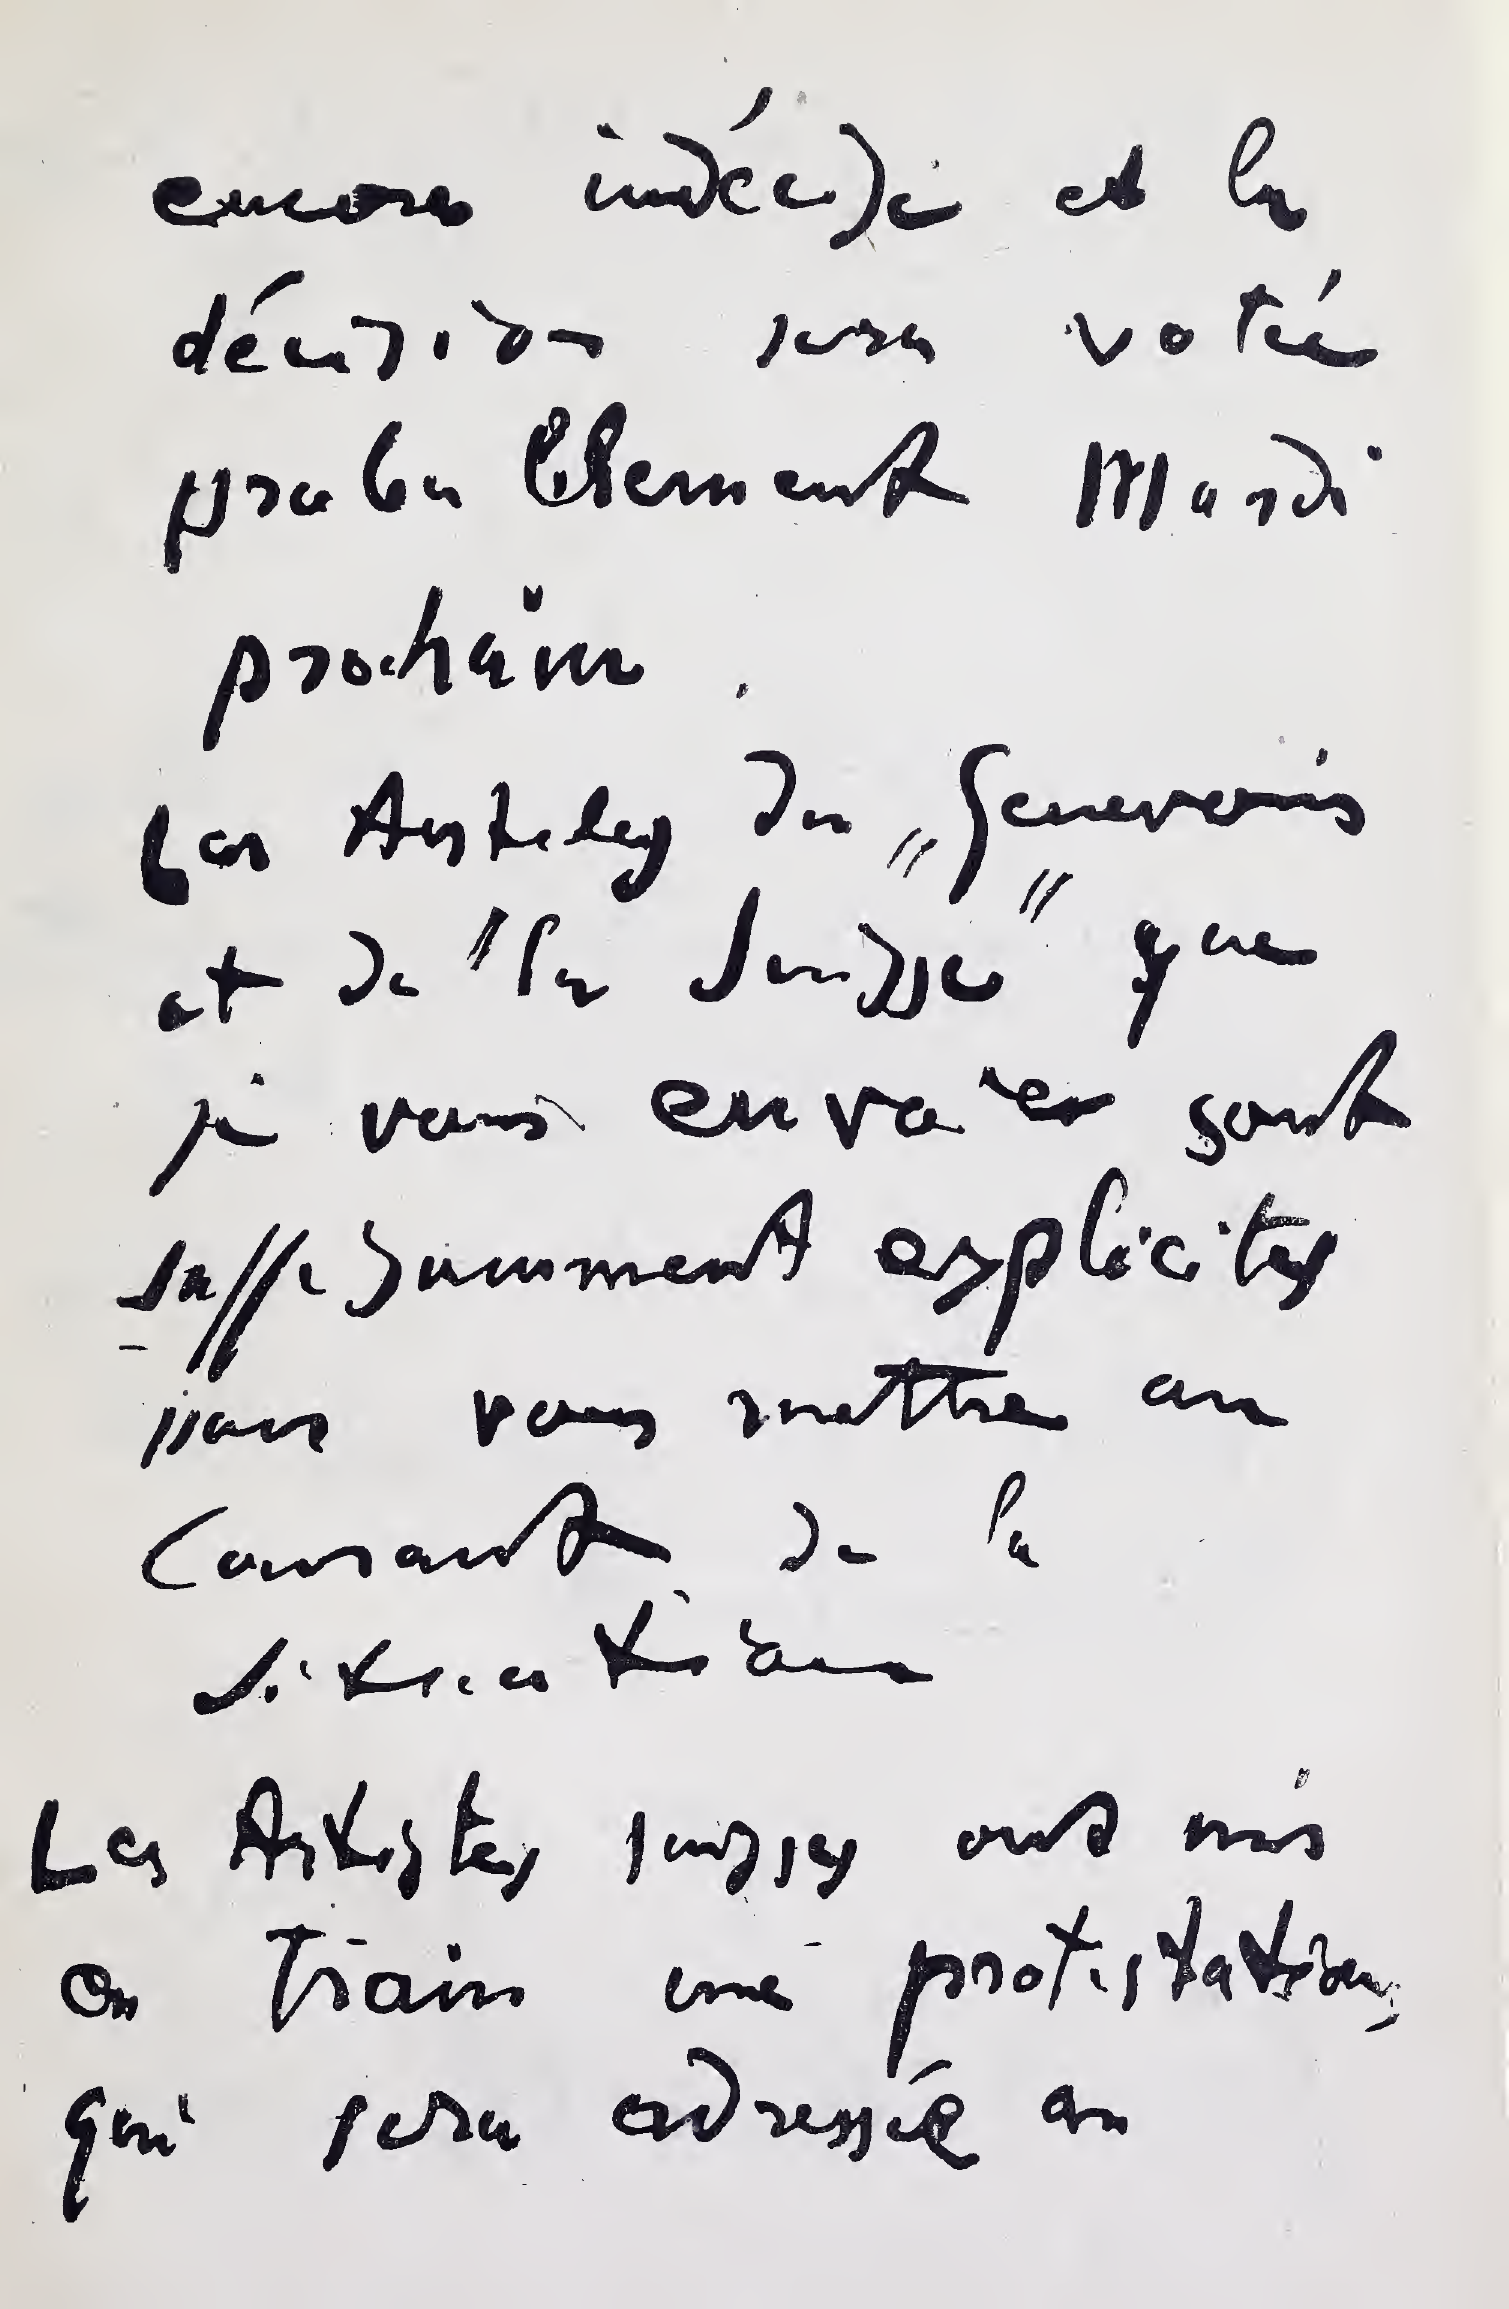 encore indécise et la
décision sera votée
probablement Mardi
prochain.
Les Articles du „Genevois"
et de "la Suisse" que
je vous envoie sont
suffisamment explicites
pour vous mettre au
courant de la
situation
Les Artistes suisses ont mis
en train une protestation,
qui sera adressée au